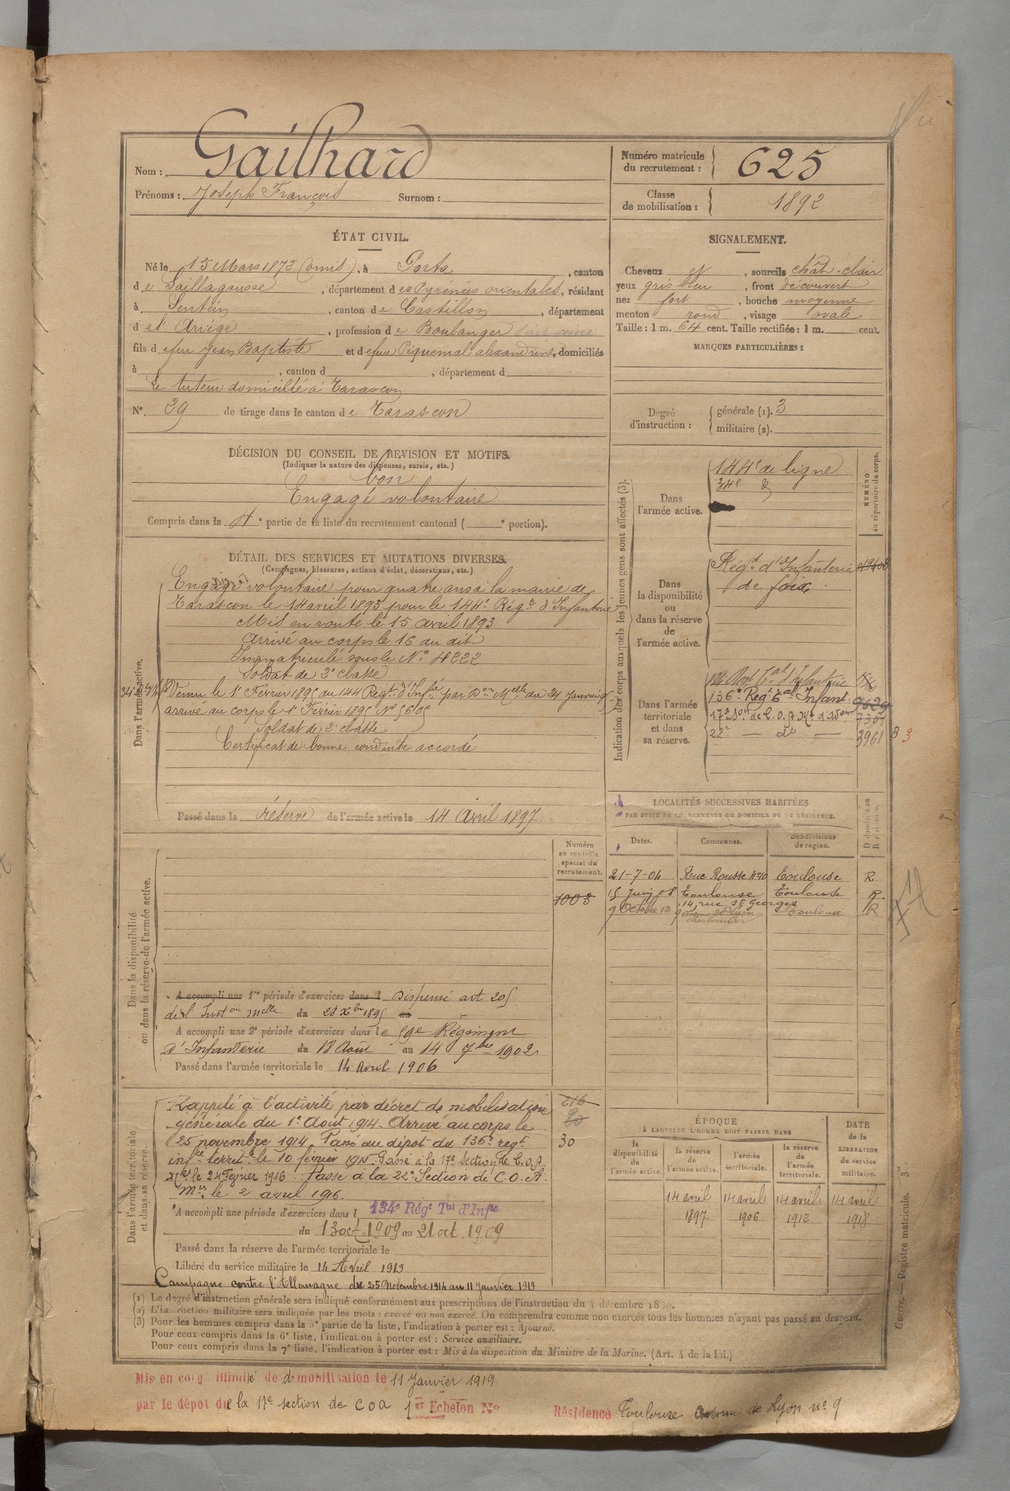 Nom : Gailhard
Prénoms : Joseph François Surnom :
Numéro matricule du recrutement : 625
Classe de mobilisation : 1892
ÉTAT CIVIL.
Né le 15 Mars 1872 (omis), à Porta, canton
de Saillagousse, département des Pyrénées orientales, résidant
à Sentein, canton de Castillon, département
d et Ariège, profession de Boulanger
fils de feu Jean Baptiste et de feue Piquemal alexandrine, domiciliés
à , canton d , département d
Le tuteur domicilié à Tarascon
N°. 39 de tirage dans le canton de Tarascon
SIGNALEMENT.
Cheveux et, sourcils chât-clair
yeux gris bleu, front découvert
nez fort, bouche moyenne
menton rond, visage ovale
Taille : 1 m. 64 cent. Taille rectifiée : 1 m. cent.
MARQUES PARTICULIÈRES :
Degré d'instruction : générale (1). 3
militaire (2).
DÉCISION DU CONSEIL DE REVISION ET MOTIFS.
(Indiquer la nature des dispenses, sursis, etc.)
bon
Engagé volontaire
Compris dans la 4e partie de la liste du recrutement cantonal ( e portion).
DÉTAIL DES SERVICES ET MUTATIONS DIVERSES.
(Campagnes, blessures, actions d'éclat, décorations, etc.)
Dans l'armée active.
Engagé volontaire pour quatre ans à la mairie de
Tarascon le 14 avril 1893 pour le 144e Régt d'Infanterie
Mis en route le 15 avril 1893
Arrivé au corps le 16 au dit
Immatriculé sous le N° 4222
Soldat de 2e classe
arrivé au corps le 1r Février 1895
Soldat de 2e classe
Certificat de bonne conduite accordé
Passé dans la réserve de l'armée active le 14 Avril 1897
Indication des corps auxquels les jeunes gens sont affectés (3).
NUMÉRO au répertoire du corps.
Dans l'armée active.
144e de ligne
34e d°
Dans la disponibilité ou dans la réserve de l'armée active.
Régt d'Infanterie
de Foix
Dans l'armée territoriale et dans sa réserve.
136e Régt tal Infant.
17e Son de C.O.A. 7307
22e — d° — 3961
33
LOCALITÉS SUCCESSIVES HABITÉES
PAR SUITE DE CHANGEMENTS DE DOMICILE OU DE RÉSIDENCE.
Dates. Communes. Subdivisions de région.
21-7-04 Rue Rousse N°10 Toulouse R.
15 Juin 08 Toulouse Toulouse R
14, rue St Georges
9 Octobre 12 Toulouse R
Numéro au contrôle spécial du recrutement.
1003
Dans la disponibilité ou dans la réserve de l'armée active.
A accompli une 1re période d'exercices dans l Dispensé art 205
de l'Inston Melle du 28 Xbre 1895
A accompli une 2e période d'exercices dans le 59e Régiment
d'Infanterie du 18 Août au 14 7bre 1902
Passé dans l'armée territoriale le 14 Avril 1906
Dans l'armée territoriale et dans sa réserve.
Rappelé à l'activité par décret de mobilisation
générale du 1er Août 1914. Arrivé au corps le
25 novembre 1914. Passé au dépôt du 136e régt
infie territle le 10 février 1915. Passé à la 17e Section de C.O.A
le 24 Février 1916. Passé à la 22e Section de C.O.A.
le 2 avril 1916.
216
20
30
A accompli une période d'exercices dans l 134e Régt Tal d'Infie
du 13 oct 1909 au 21 oct 1909
Passé dans la réserve de l'armée territoriale le
Libéré du service militaire le 14 Avril 1919
Campagne contre l'Allemagne du 25 Novembre 1914 au 11 Janvier 1919
ÉPOQUE
À LAQUELLE L'HOMME DOIT PASSER DANS
la disponibilité de l'armée active. la réserve de l'armée active. l'armée territoriale. la réserve de l'armée territoriale.
DATE de la LIBÉRATION du service militaire.
14 avril 1897 14 avril 1906 14 avril 1912 14 avril 1918
Guerre. — Registre matricule. 3
(1) Le degré d'instruction générale sera indiqué conformément aux prescriptions de l'instruction du 4 décembre 1889.
(2) L'instruction militaire sera indiquée par les mots : exercé ou non exercé. On comprendra comme non exercés tous les hommes n'ayant pas passé au drapeau.
(3) Pour les hommes compris dans la 5e partie de la liste, l'indication à porter est : Ajourné.
Pour ceux compris dans la 6e liste, l'indication à porter est : Service auxiliaire.
Pour ceux compris dans la 7e liste, l'indication à porter est : Mis à la disposition du Ministre de la Marine. (Art. 4 de la loi.)
Mis en congé illimité de démobilisation le 11 Janvier 1919
par le dépôt de la 17e section de COA 1er Echelon N°
Résidence Toulouse avenue de Lyon n° 9